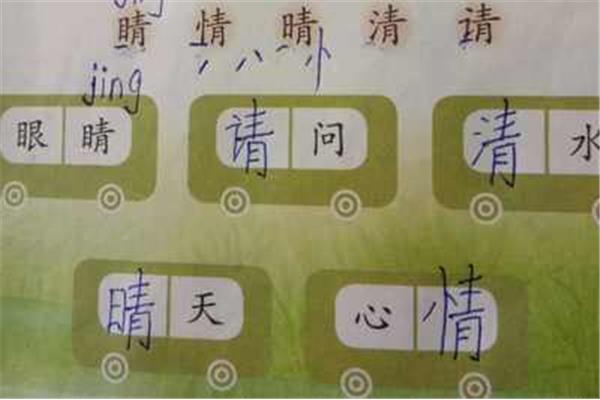 睛 情 晴 清 请
jing
眼睛 请问 清水
晴天 心情